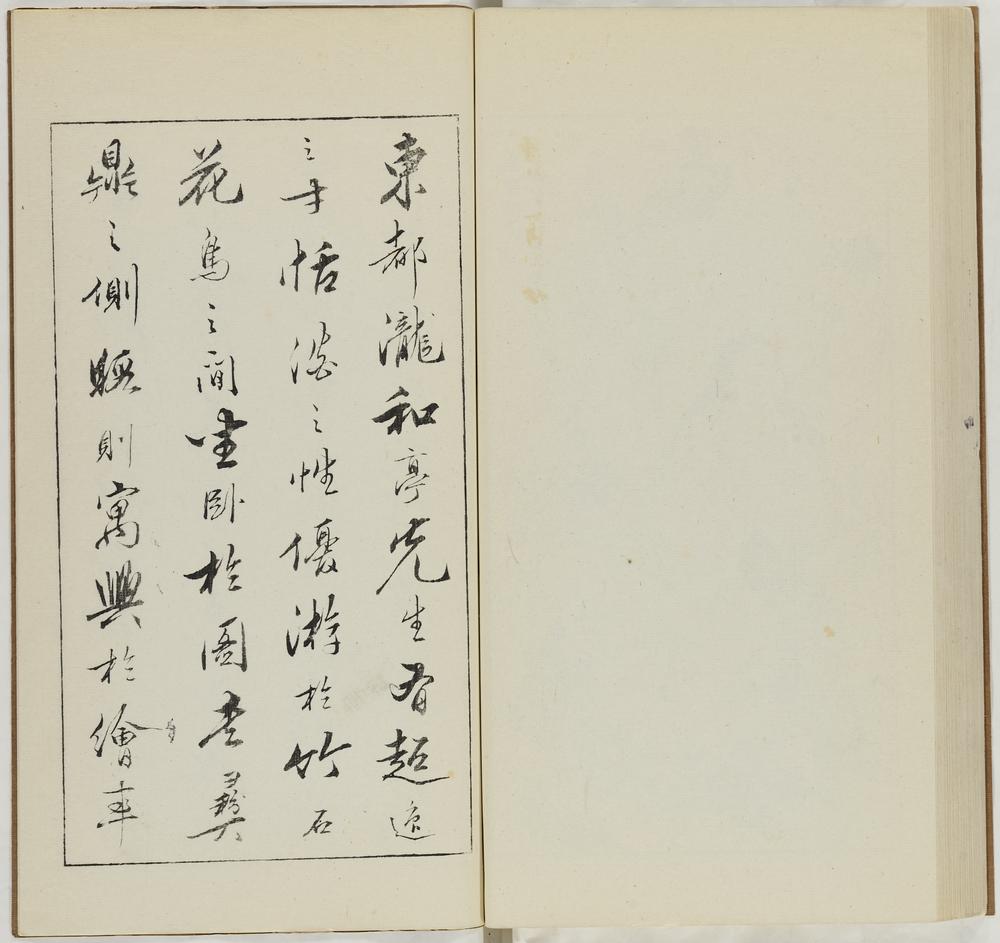 東都瀧和亭先生有超逸
之才恬澹之性優游於竹石
花鳥之間坐臥於圖書彝
鼎之側暇則寓興於繪事